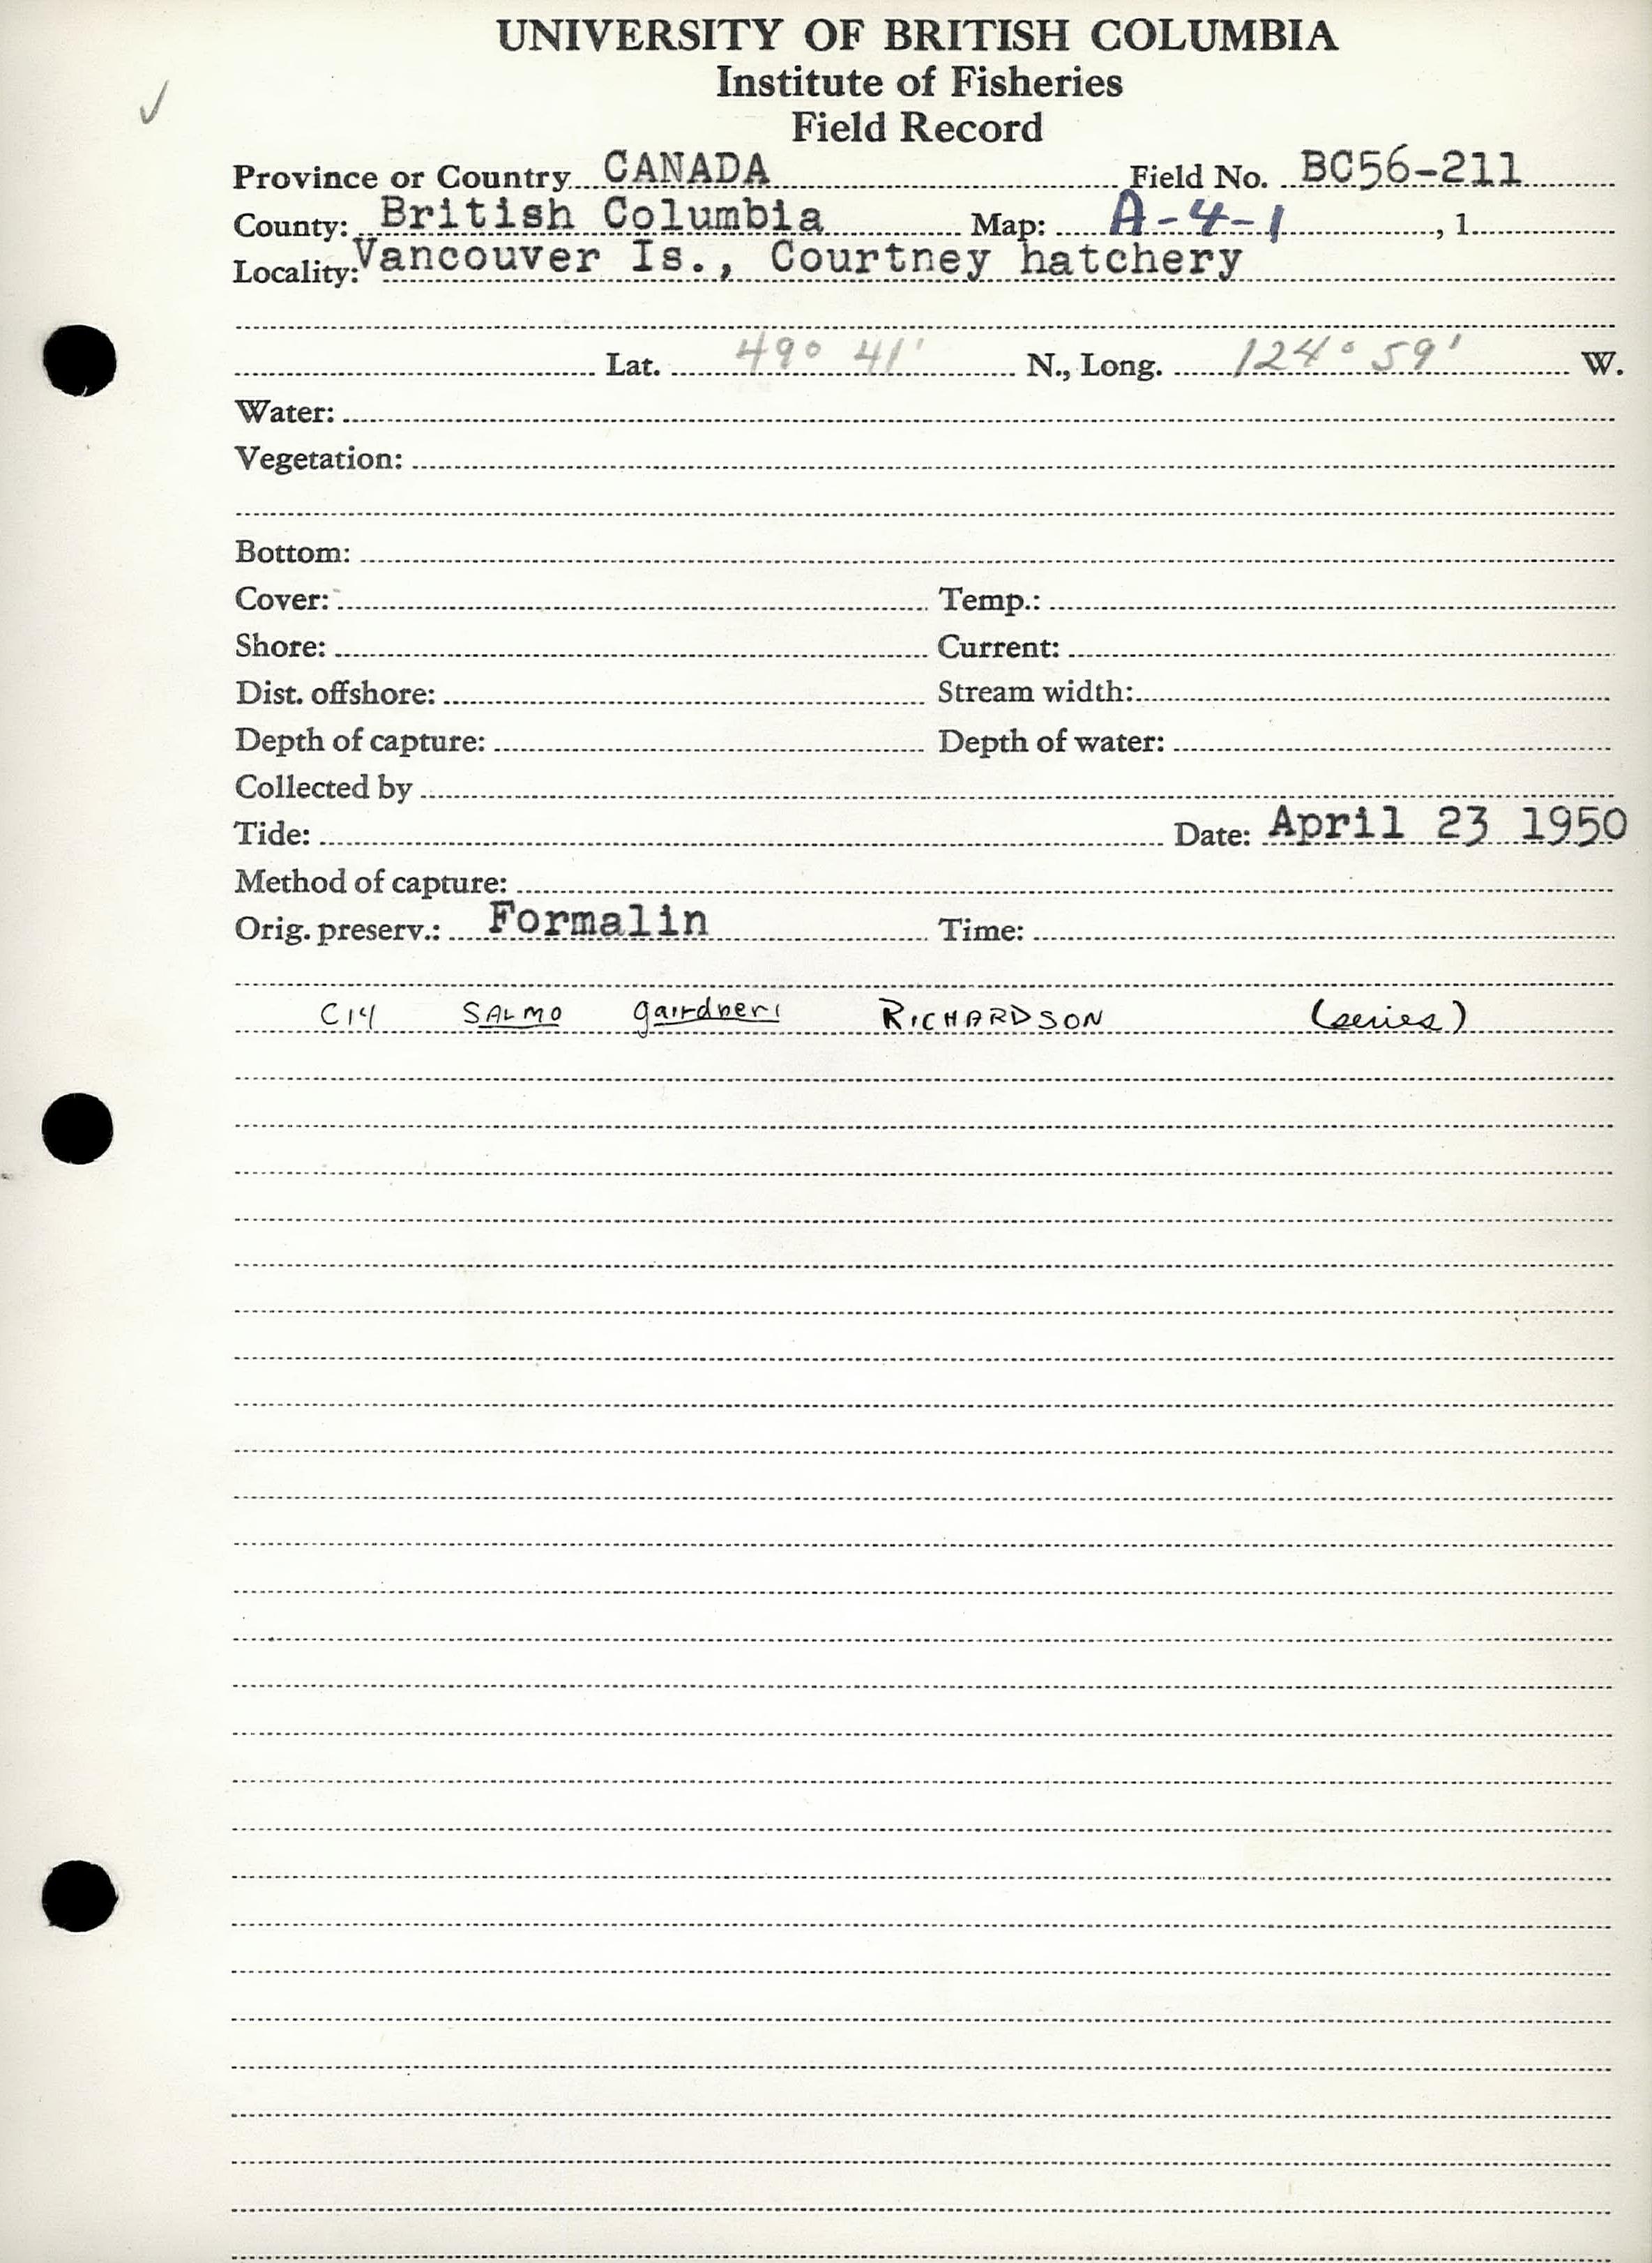 UNIVERSITY OF BRITISH COLUMBIA
Institute of Fisheries
Field Record
Province or Country CANADA Field No. BC56-211
County: British Columbia Map: A-4-1, 1
Locality: Vancouver Is., Courtney hatchery
Lat. 49° 41' N., Long. 124° 59' W.
Water:
Vegetation:
Bottom:
Cover: Temp.:
Shore: Current:
Dist. offshore: Stream width:
Depth of capture: Depth of water:
Collected by
Tide: Date: April 23 1950
Method of capture:
Orig. preserv.: Formalin Time:
C14 SALMO gairdneri RICHARDSON (series)